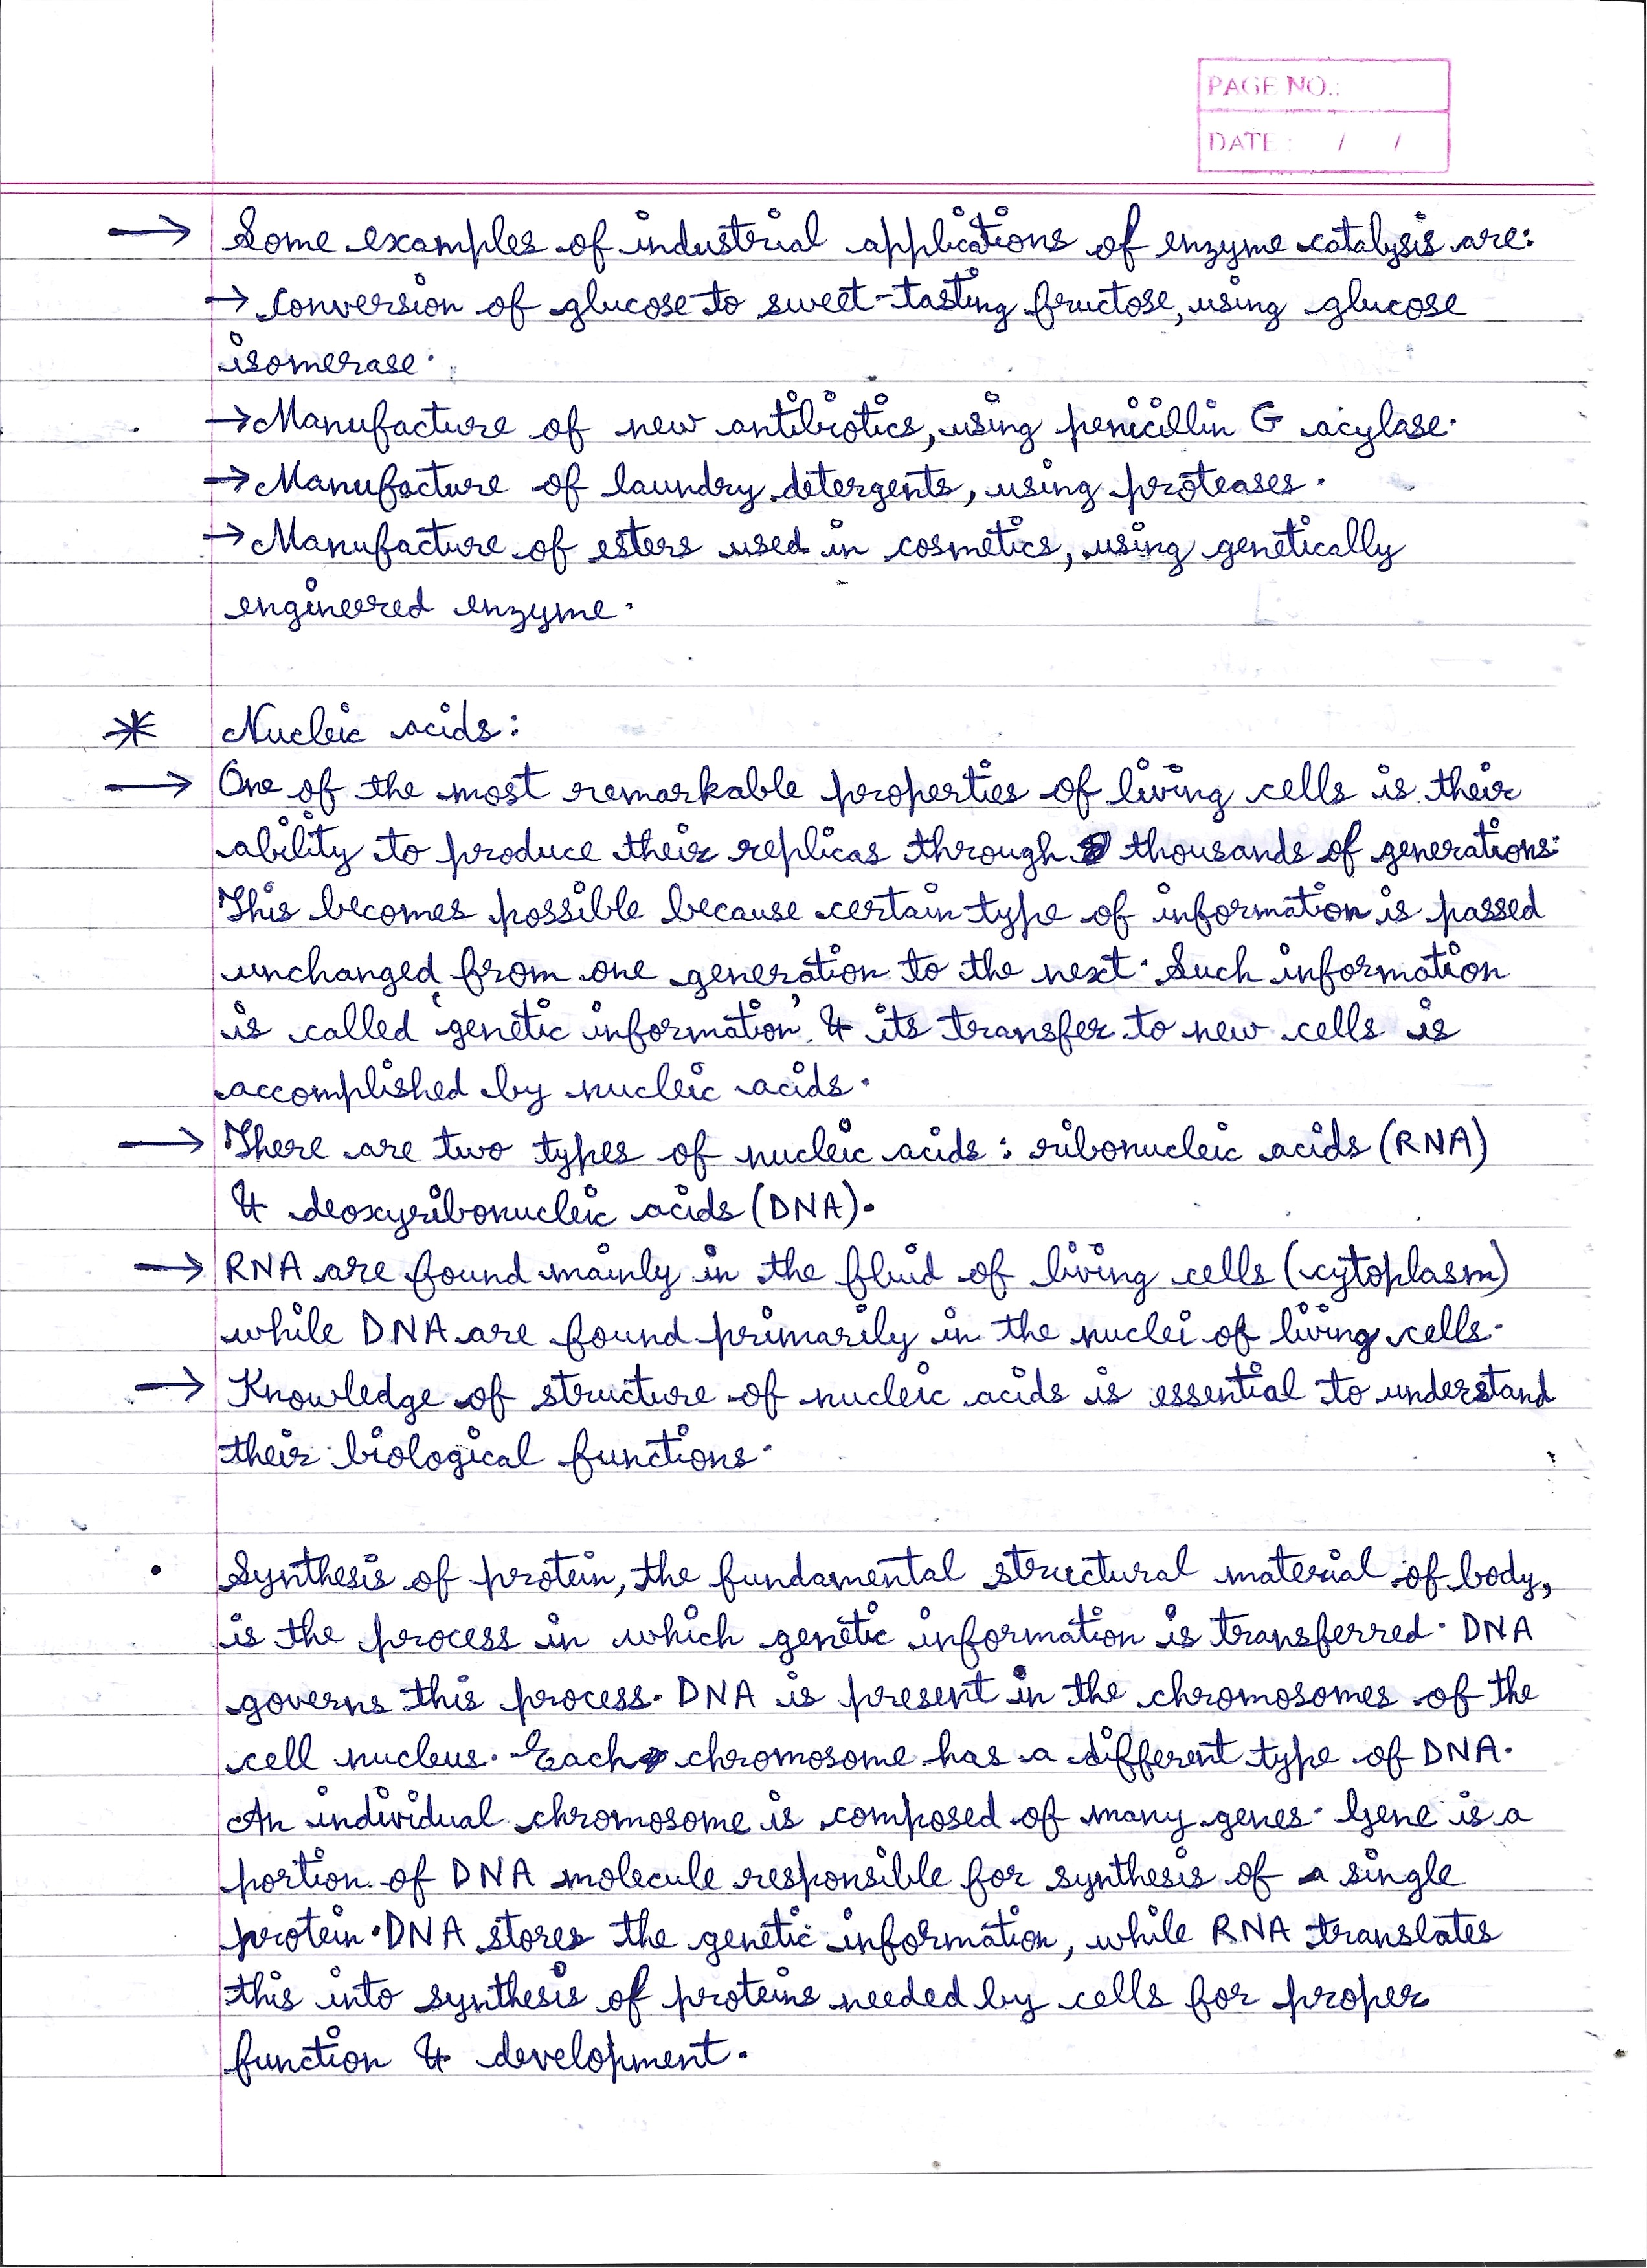 PAGE NO.:
DATE: / /
→ Some examples of industrial applications of enzyme catalysis are:
→ Conversion of glucose to sweet-tasting fructose, using glucose
isomerase.
→ Manufacture of new antibiotics, using penicillin G acylase.
→ Manufacture of laundry detergents, using proteases.
→ Manufacture of esters used in cosmetics, using genetically
engineered enzyme.
* Nucleic acids:
→ One of the most remarkable properties of living cells is their
ability to produce their replicas through thousands of generations.
This becomes possible because certain type of information is passed
unchanged from one generation to the next. Such information
is called 'genetic information' & its transfer to new cells is
accomplished by nucleic acids.
→ There are two types of nucleic acids: ribonucleic acids (RNA)
& deoxyribonucleic acids (DNA).
→ RNA are found mainly in the fluid of living cells (cytoplasm)
while DNA are found primarily in the nuclei of living cells.
→ Knowledge of structure of nucleic acids is essential to understand
their biological functions.
• Synthesis of protein, the fundamental structural material of body,
is the process in which genetic information is transferred. DNA
governs this process. DNA is present in the chromosomes of the
cell nucleus. Each chromosome has a different type of DNA.
An individual chromosome is composed of many genes. Gene is a
portion of DNA molecule responsible for synthesis of a single
protein. DNA stores the genetic information, while RNA translates
this into synthesis of proteins needed by cells for proper
function & development.